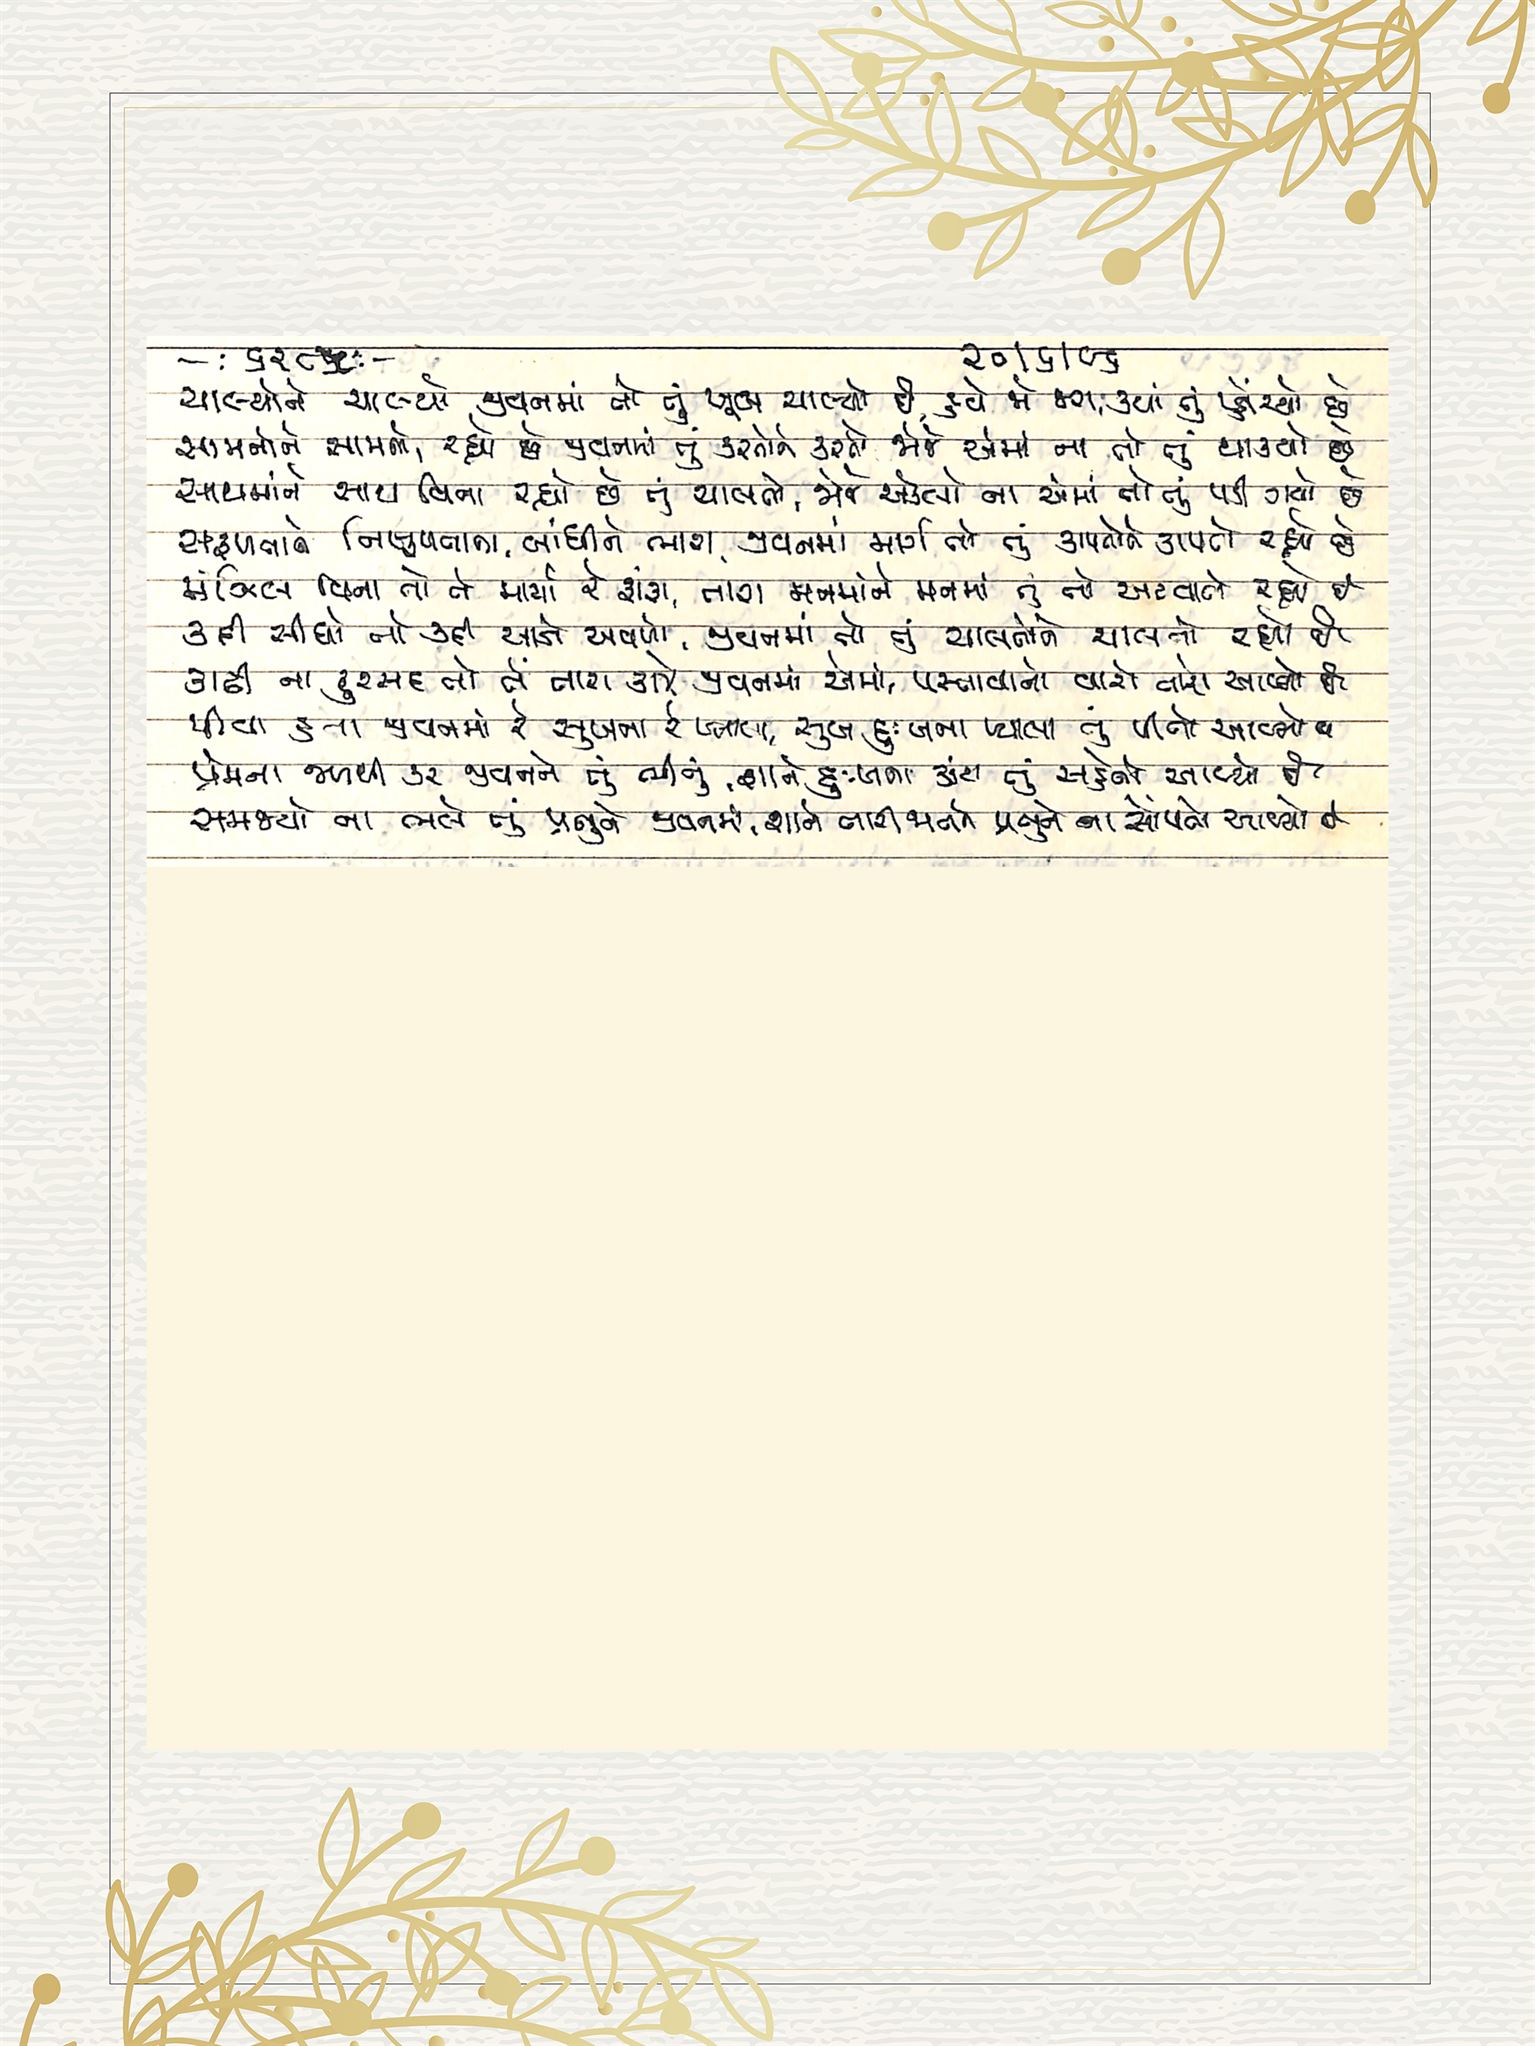 -: ૬૨૮૪ :- ૨૦/૬/૯૬
ચાલ્યોને ચાલ્યો જીવનમાં તો તું ખૂબ ચાલ્યો છે, હવે જો જરા, ક્યાં તું પહોંચ્યો છે
સામનોને સામનો, રહ્યો છે જીવનમાં તું કરતોને કરતો જોજે એમાં ના તો તું થાક્યો છે
સાથમાંને સાથ વિના રહ્યો છે તું ચાલતો, જોજે એકલો ના એમાં તો તું પડી ગયો છે
સફળતાને નિષ્ફળતાના, બાંધીને ભારા, જીવનમાં માર્ગ તો તું કાપતોને કાપતો રહ્યો છે
મંઝિલ વિના તો તેં માર્યા રે ફાંફાં, તારા મનમાંને મનમાં તું તો અટવાતો રહ્યો છે
કદી સીધો તો કદી આડો અવળો, જીવનમાં તો તું ચાલતોને ચાલતો રહ્યો છે
કાઢી ના ફુરસદ તો તેં તારા કાજે જીવનમાં એમાં, પસ્તાવાનો વારો તારો આવ્યો છે
પીવા હતા જીવનમાં રે સુખના રે પ્યાલા, સુખ દુઃખના પ્યાલા તું પીતો આવ્યો છે
પ્રેમના જળથી કર જીવનને તું ભીનું, શાને દુઃખના ડંખ તું સહેતો આવ્યો છે
સમજ્યો ના ભલે તું પ્રભુને જીવનમાં, શાને તારી જાતને પ્રભુને ના સોંપતો આવ્યો છે